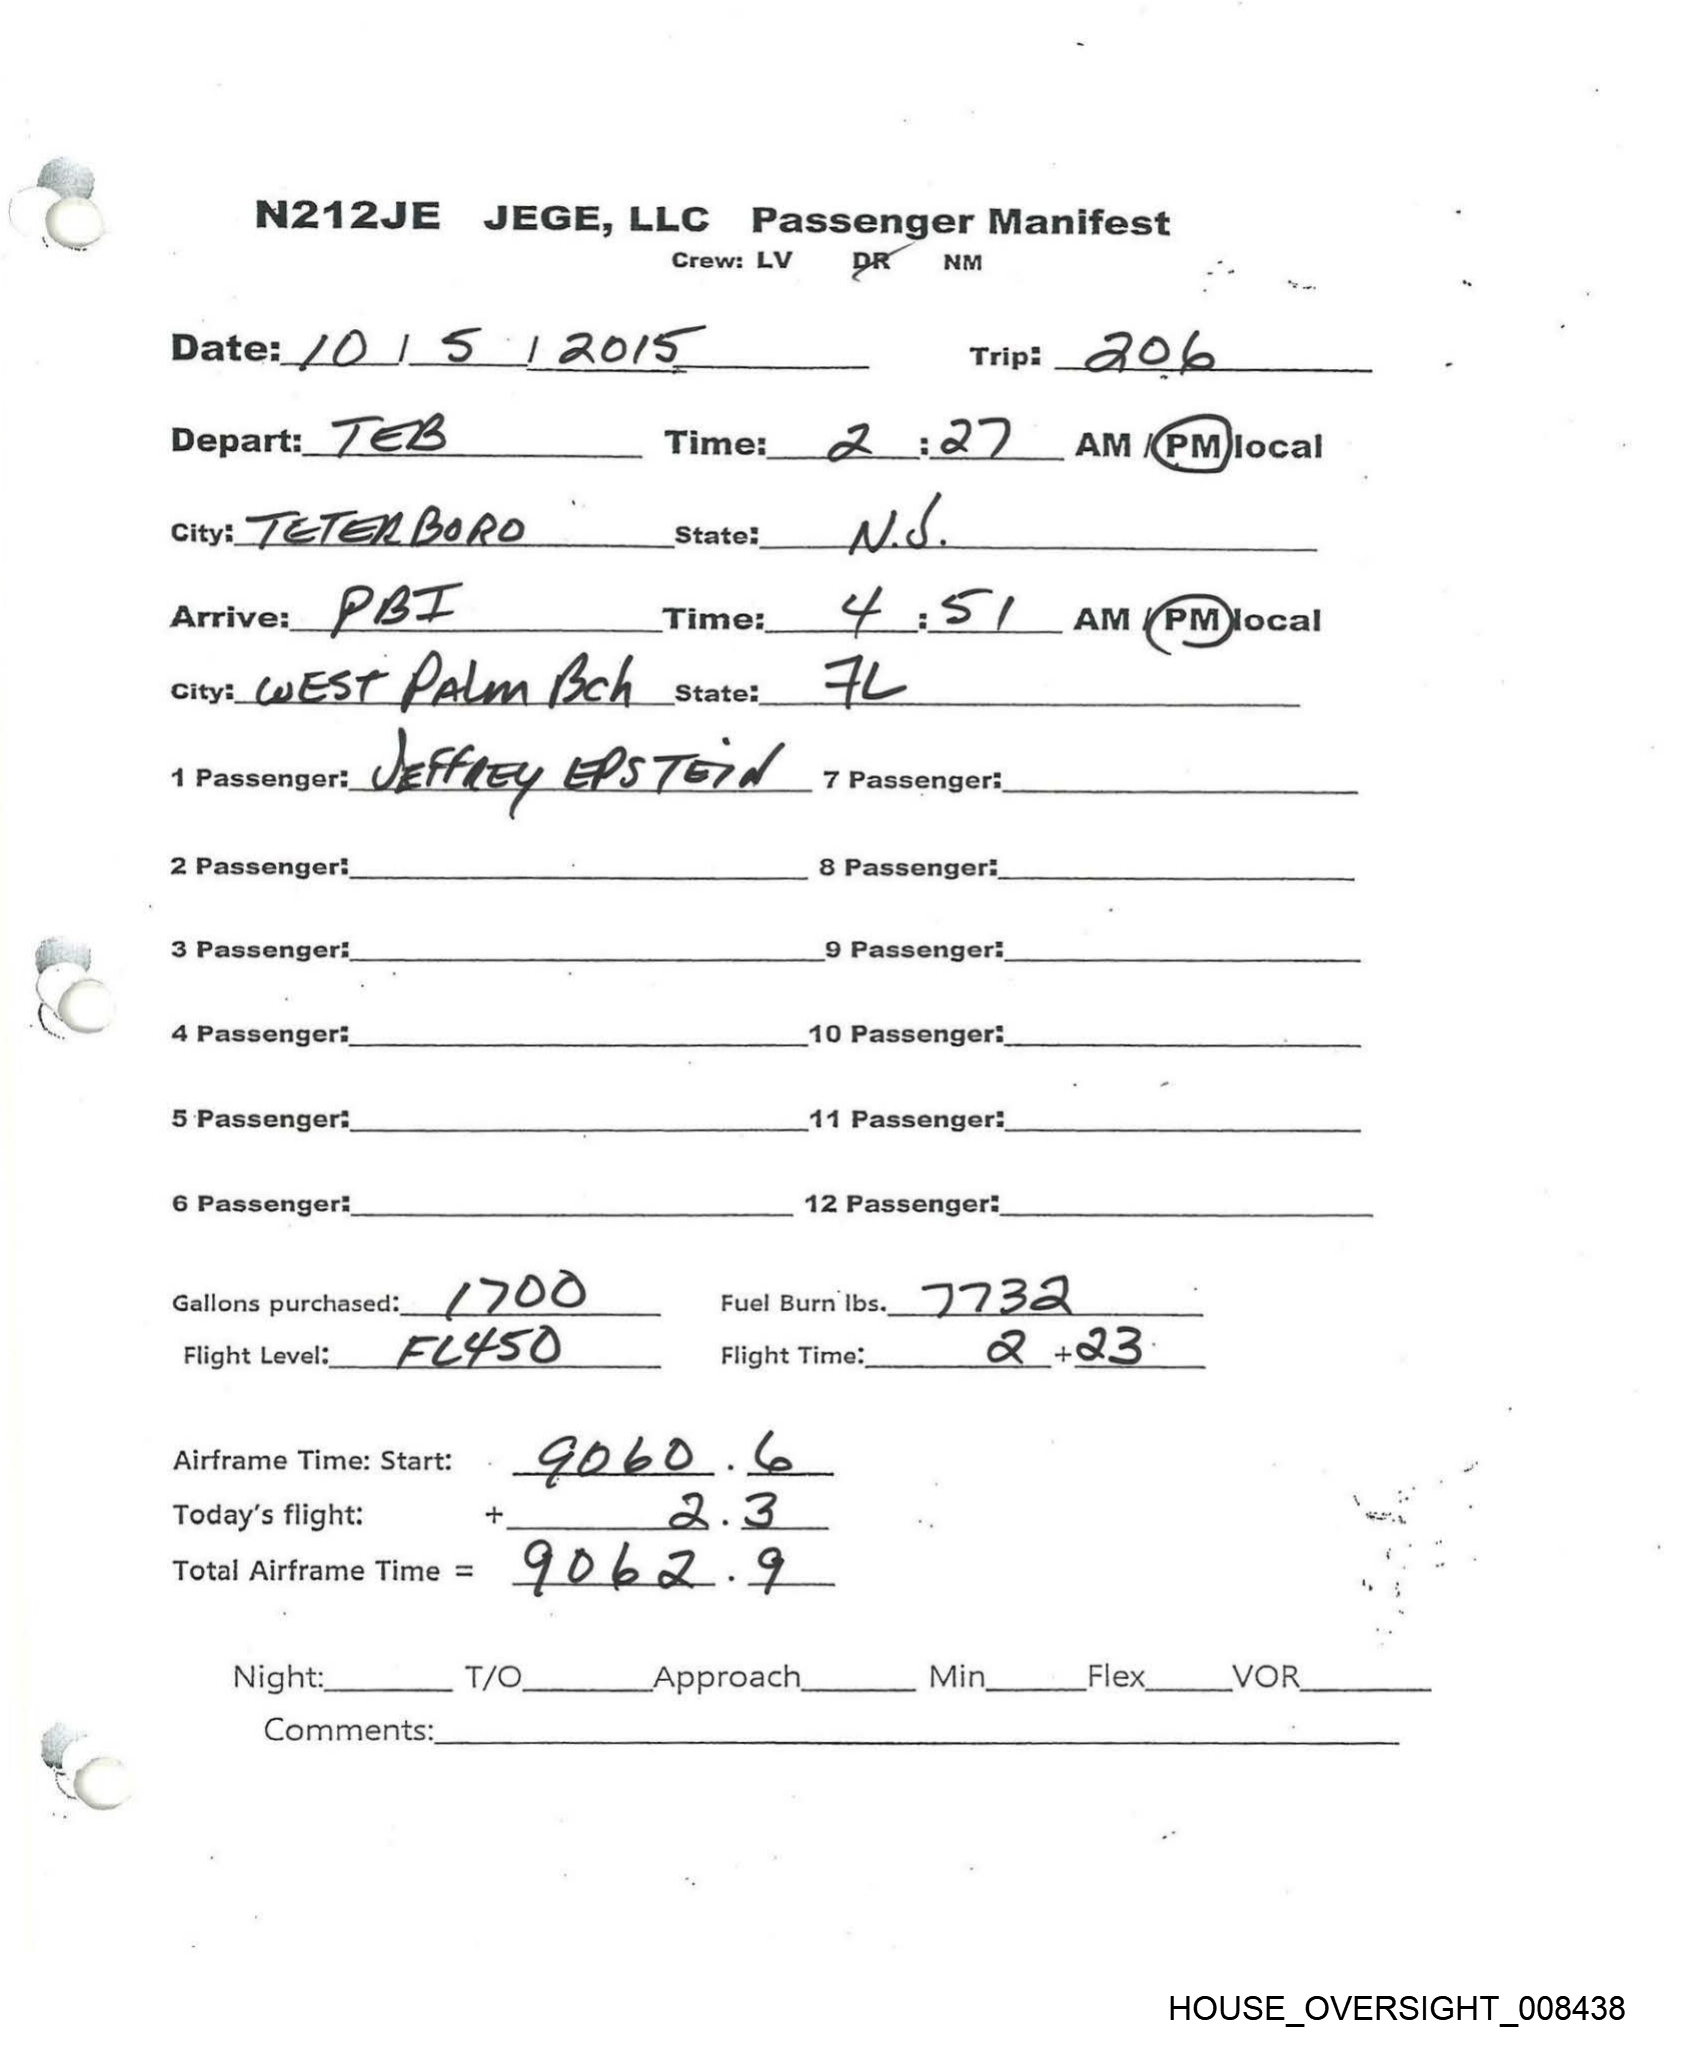 N212JE JEGE, LLC Passenger Manifest
Crew: LV DR NM
Date: 10 / 5 / 2015 Trip: 206
Depart: TEB Time: 2 : 27 AM / PM local
City: TETERBORO State: N.J.
Arrive: PBI Time: 4 : 51 AM / PM local
City: WEST PALM Bch State: FL
1 Passenger: JEFFREY EPSTEIN 7 Passenger:
2 Passenger: 8 Passenger:
3 Passenger: 9 Passenger:
4 Passenger: 10 Passenger:
5 Passenger: 11 Passenger:
6 Passenger: 12 Passenger:
Gallons purchased: 1700 Fuel Burn lbs. 7732
Flight Level: FL450 Flight Time: 2 + 23
Airframe Time: Start: 9060 . 6
Today's flight: + 2 . 3
Total Airframe Time = 9062 . 9
Night: T/O Approach Min Flex VOR
Comments:
HOUSE_OVERSIGHT_008438